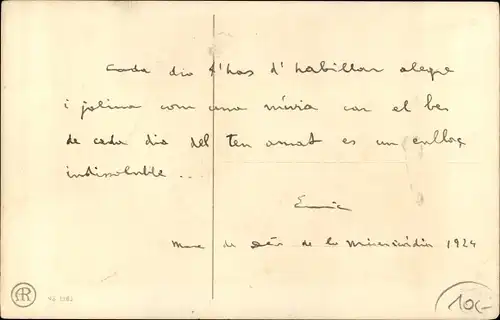 Cada dia t'has d'habillar alegre
i joliua com una núvia car el bes
de cada dia del teu amat es un enllaç
indissoluble ...
Enric
Mare de Déu de la Misericòrdia 1924
AR
10.-